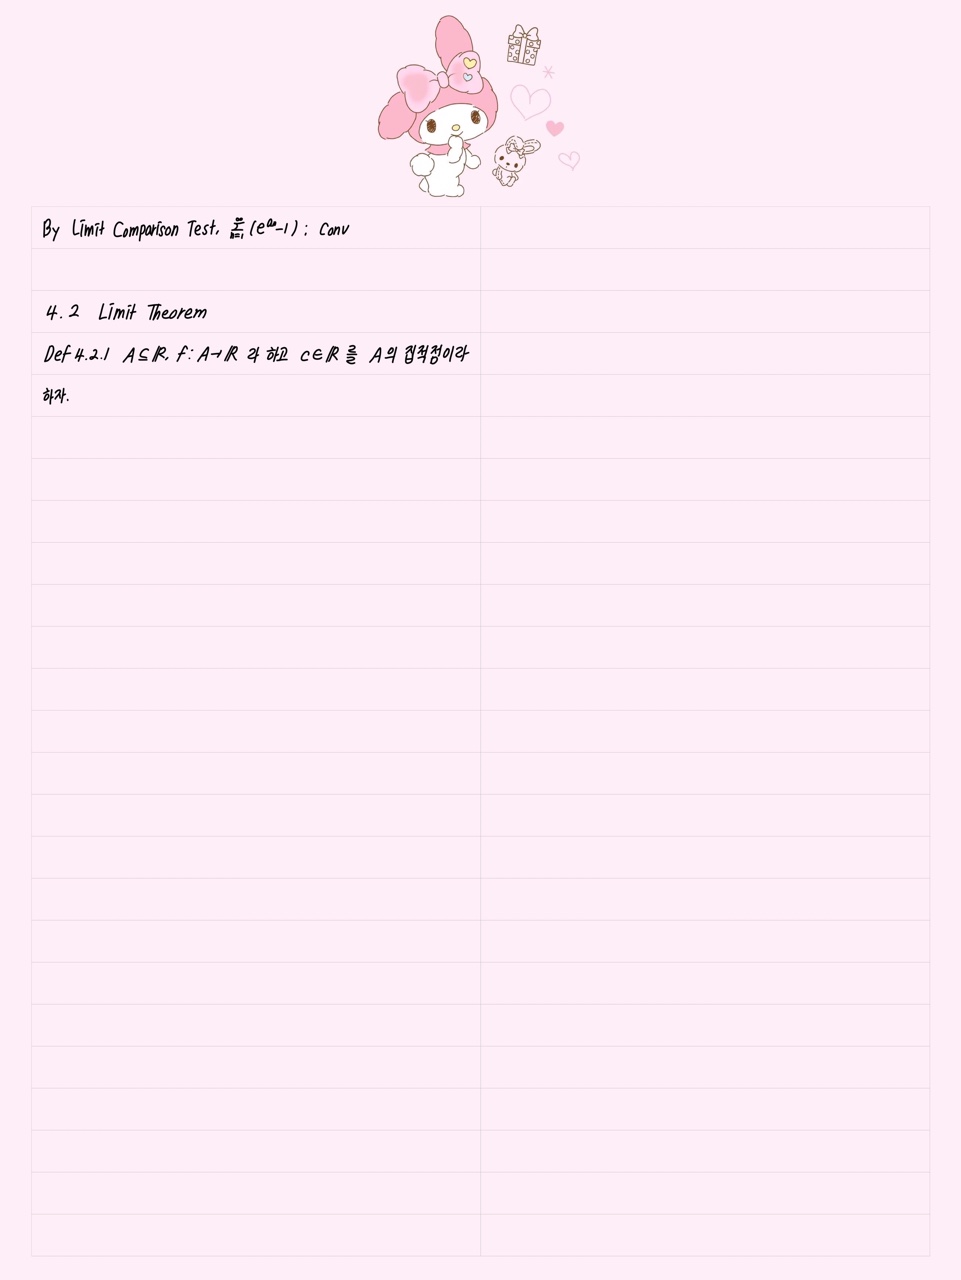 By Limit Comparison Test, ∑_{n=1}^{∞}(e^{a_n}-1) : conv
4.2 Limit Theorem
Def 4.2.1 A⊆ℝ, f: A→ℝ 라 하고 c∈ℝ 를 A의 집적점이라
하자.